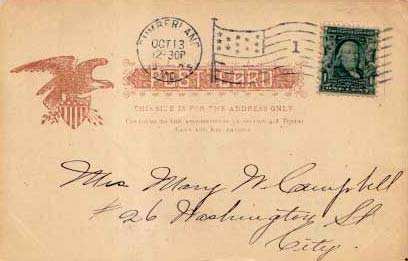 CUMBERLAND
OCT 13
12-30P
1
POST CARD
THIS SIDE IS FOR THE ADDRESS ONLY
Mrs Mary W. Campbell
#26 Washington St
City.